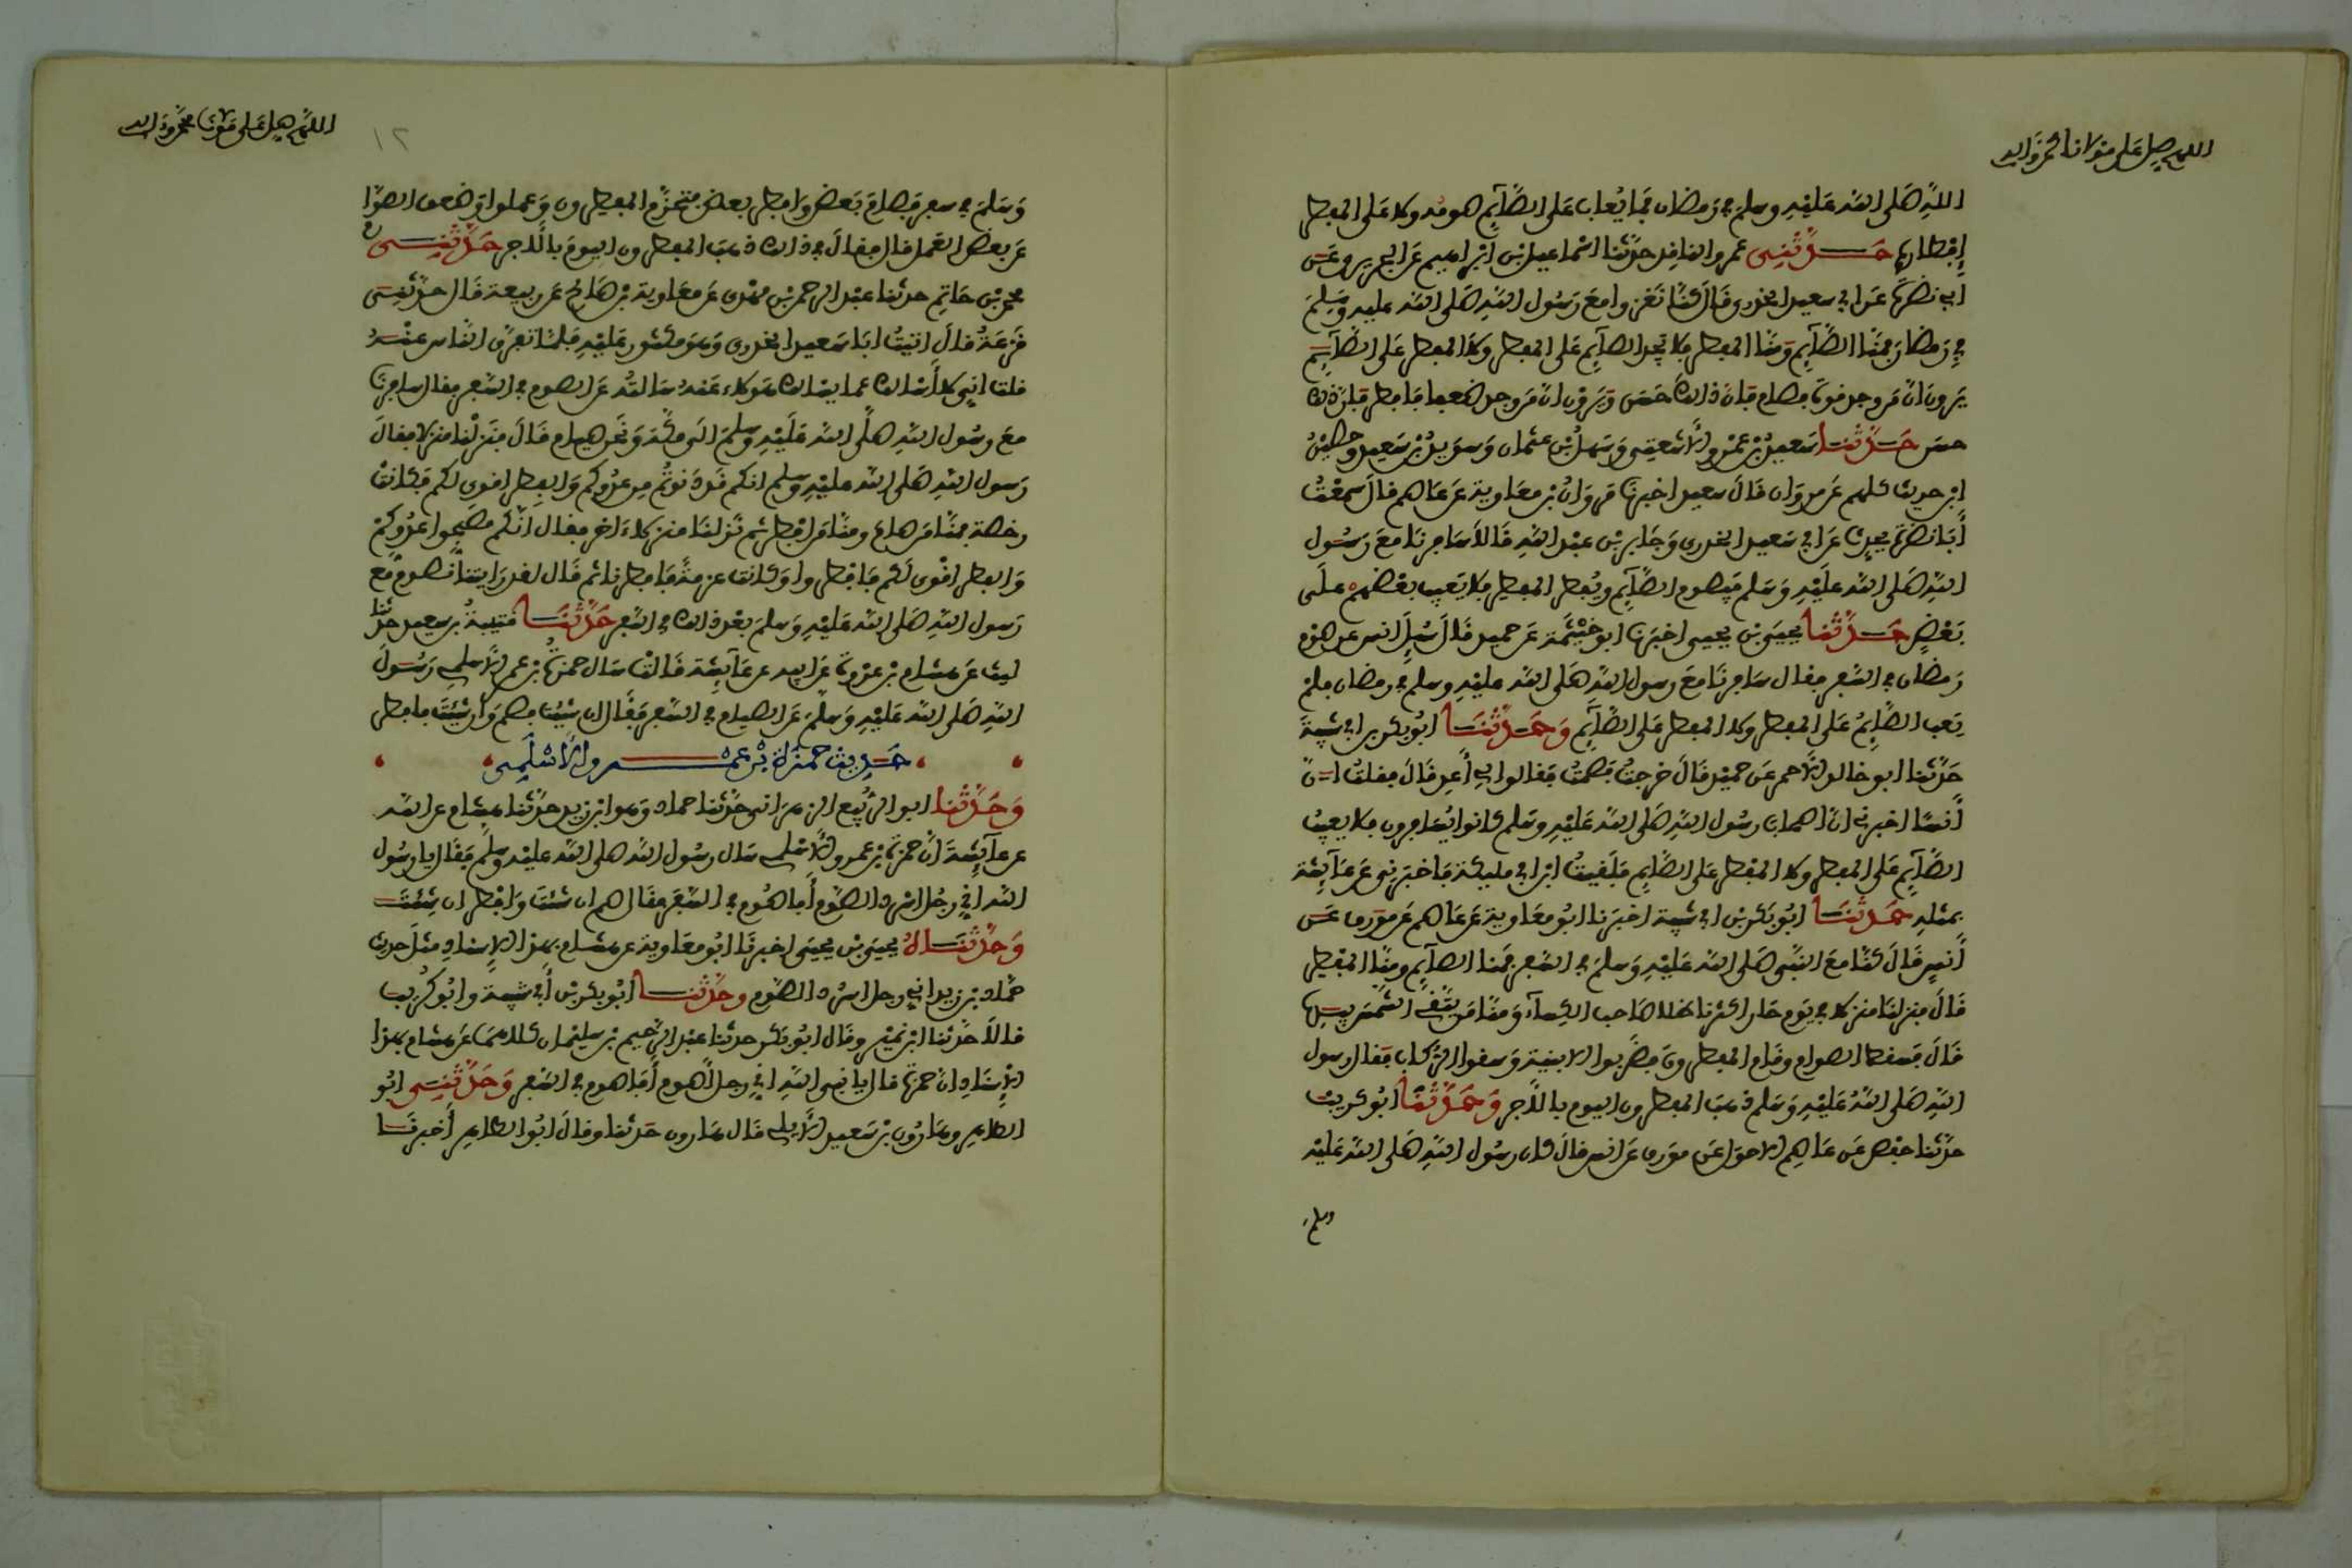 اللهم صل على مولانا محمد وآله
اللهِ صَلى الله عَليْهِ وسلمَ في رَمَضان فمَا يُعابُ على الصَّآئِمِ صومُه ولا عَلى المفطر
إِفْطارهُ حَدَّثَنِي عمرو الناقد حدَّثنا اسْماعيل بْنُ ابْراهيم عَن الجريري عَن
ابي نضرَةَ عَن ابي سعيد الخدري قَالَ كنَّا نَغزوا معَ رَسُول اللهِ صَلى الله عليه وَسَلمَ
في رَمضان فمنَّا الصَّآئِم وَمنَّا المفطر فلا يَجد الصآئِم عَلى المفطر وَلا المفطر عَلى الصَّآئِم
يَرون انَّ مَن وجد قوةً فصام فَانَّ ذالك حَسَن وَيَرَوْن انَّ مَن وجد ضعفا فَافطر فَانَّ ذالك
حسن حَدَّثَنا سَعيدُ بْن عَمْرو الاشْعَثِي وَسَهلُ بْن عثمان وَسوَيدُ بْن سَعيد وحسَيْنُ
ابْن حريث كلهم عَن مروَان قَالَ سعيد اخبرنَا مَروَانُ بْن معَاوية عَن عَاصم قالَ سَمِعْتُ
أَبَا نضرَةَ يحدث عَن ابي سَعيد الخدري وَجَابر بْن عبْد اللهِ قَالاَ سَافرنَا معَ رَسُول
اللهِ صَلى الله علَيْهِ وَسَلم فيَصوم الصَّآئِم ويُفطر المفطر فلا يَعيب بعْضهمْ علَى
بَعْضٍ حَدَّثَنا يحيَى بْن يحيى اخبرَنا ابو خَيْثَمَة عَن حميد قَالَ سُئِلَ انس عن صَوْم
رَمضان في السَّفر فقال سَافرنَا مَعَ رسول الله صَلى الله عليْهِ وسلم في رمضان فلمْ
يَعب الصَّائِمُ عَلى المفطر ولا المفطر عَلى الصَّآئِم وَحَدَّثَنَا ابُو بكر بن ابي شيْبة
حَدَّثنا ابو خالد الاحمر عَن حميْد قَالَ خرجتُ فَصمتُ فَقالوا لِي أَعِد قَالَ فقلتُ انَّ
أَنسًا اخبرني انَّ اصحابَ رسُول اللهِ صَلى الله عَليْهِ وسَلم كانوا يُسَافرون فلا يعيبُ
الصَّآئِم عَلى المفطر ولا المفْطر عَلى الصَّائِم فَلَقيتُ ابْن ابي مليكة فَاخبَرني عَن عَآئِشة
بمثْلهِ حَدَّثَنَا ابُو بَكر بْن ابي شيْبة اخبَرنا ابُو معَاوية عَن عَاصم عَن مورق عَن
أَنسٍ قَالَ كنَّا مَعَ النَّبي صَلى الله عَليْهِ وَسلمَ في السَّفر فَمنا الصَآئِم ومنَّا المفْطر
قَالَ فنزلنَا منزلا في يَوم حَار اكثرنا ظلا صَاحب الكسَآءِ وَمنَّا مَن يَتَّقي الشَّمسَ بيدهَا
قَالَ فَسقط الصوام وقَام المفطرونَ فضَربوا الابنية وَسقوا الركاب فقال رسول
اللهِ صَلى اللهُ عَليْهِ وَسَلم ذهبَ المفطرون اليوم بالاَّجر وَحَدَّثَنَا ابُو كريْب
حدَّثنا حفص عَن عَاصِم الاحوَل عَن مورق عَن انس قالَ كان رسُول اللهِ صَلى الله عَليْه
وسلم
اللهم صل على مولانا محمد وآله
١٢
وَسَلمَ في سفر فصَامَ بَعض وَافطر بعض فتَحَزَّم المفطرون وَعملوا وَضعف الصوَّام
عَن بعض العَمل قال فقالَ في ذالك ذهبَ المفطرون اليومَ بالاَّجر حَدَّثَنِي
محمد بْن حَاتِم حدثنا عَبْد الرحمن بْن مهْدي عَن معَاوية بْن صَالح عَن ربيعة قَال حدَّثني
قَزعَةُ قالَ اتيْتُ ابَا سَعيد الخدري وَهوَ مكثور عَليْهِ فلمَّا تفرَّق النَّاس عنْهُ
قلت انِّي لا أسْالك عما يسْالك هَولاء عَنْهُ سَالتُه عَن الصوم في السَّفر فقال سافرنَا
معَ رسُول اللهِ صلَّى الله عَلَيْهِ وَسلمَ الى مكَّة وَنَحن صيام قَالَ فنَزلْنا منزلا فقالَ
رَسول اللهِ صَلى الله عليْهِ وسلم انكم قَدْ دَنوتُمْ من عدُوكم وَالفطر اقوى لكم فَكانتْ
رخصة فمنَّا مَن صَامَ ومنَّا مَن افْطر ثم نَزلنَا منزلاً آخر فقال انَّكم مصَبِّحوا عدُوكمْ
وَالفطر اقْوى لَكم فَافْطروا وَكانت عزمةً فَافطرنا ثم قَال لقد رَايتنَا نَصومُ مَع
رَسول اللهِ صَلى الله عَليْهِ وَسلمَ بعْد ذالك في السَّفر حَدَّثَنَا قتَيبةُ بن سعيد حدَّثنا
ليث عَن هشام بْن عرْوةَ عَن ابيه عن عَآئِشة قَالتْ سَال حمزَةُ بْن عمرو الاسْلمي رَسُولَ
اللهِ صَلى الله عَليْهِ وَسَلَّمَ عَن الصيام في السَّفر فَقَال ان شئتَ فصُم وَان شئتَ فافطر
حَدِيث حَمْزَة بْن عمْرو الاَسْلَمِي
وَحَدَّثَنا ابو الرَّبيع الزهرَاني حدَّثنا حماد وَهو ابْن زيد حدَّثنا هشَام عن ابيه
عن عآئِشَةَ انَّ حمزةَ بْن عمرو الاسْلمي سَال رسُول الله صلى الله عليْهِ وسلَّم فَقَال يا رسُول
الله إِنِّي رجُل اسْرد الصَّوم أَفاصُوم في السَّفَر فقَال صم ان شئتَ وَافْطر ان شئتَ
وَحَدَّثَنَاهُ يحيَى بْن يحيَى اخبرنَا ابُو معَاوية عن هشَام بهذا الاِسناد مثْلَ حديث
حمَّاد بْن زيد اني رجل اسرُد الصَّوم وحدَّثنَا ابُو بكر بْن أَبي شيْبة وابُو كُريْب
قالاَ حدَّثنا ابْن نميْر وقَال ابُو بَكر حدثنا عبْد الرَّحيم بْن سليْمان كلاهمَا عَن هشَام بهذا
الإِسْنَاد انَّ حمزةَ قال يا نبي اللهِ اني رجل اصومُ أَفَاصوم في السَّفر وَحَدَّثَنِي ابُو
الطاهر وهَارُون بْن سَعيد الاَيلي قَال هَارون حَدثنا وقالَ ابُو الطاهر أَخبرنَا